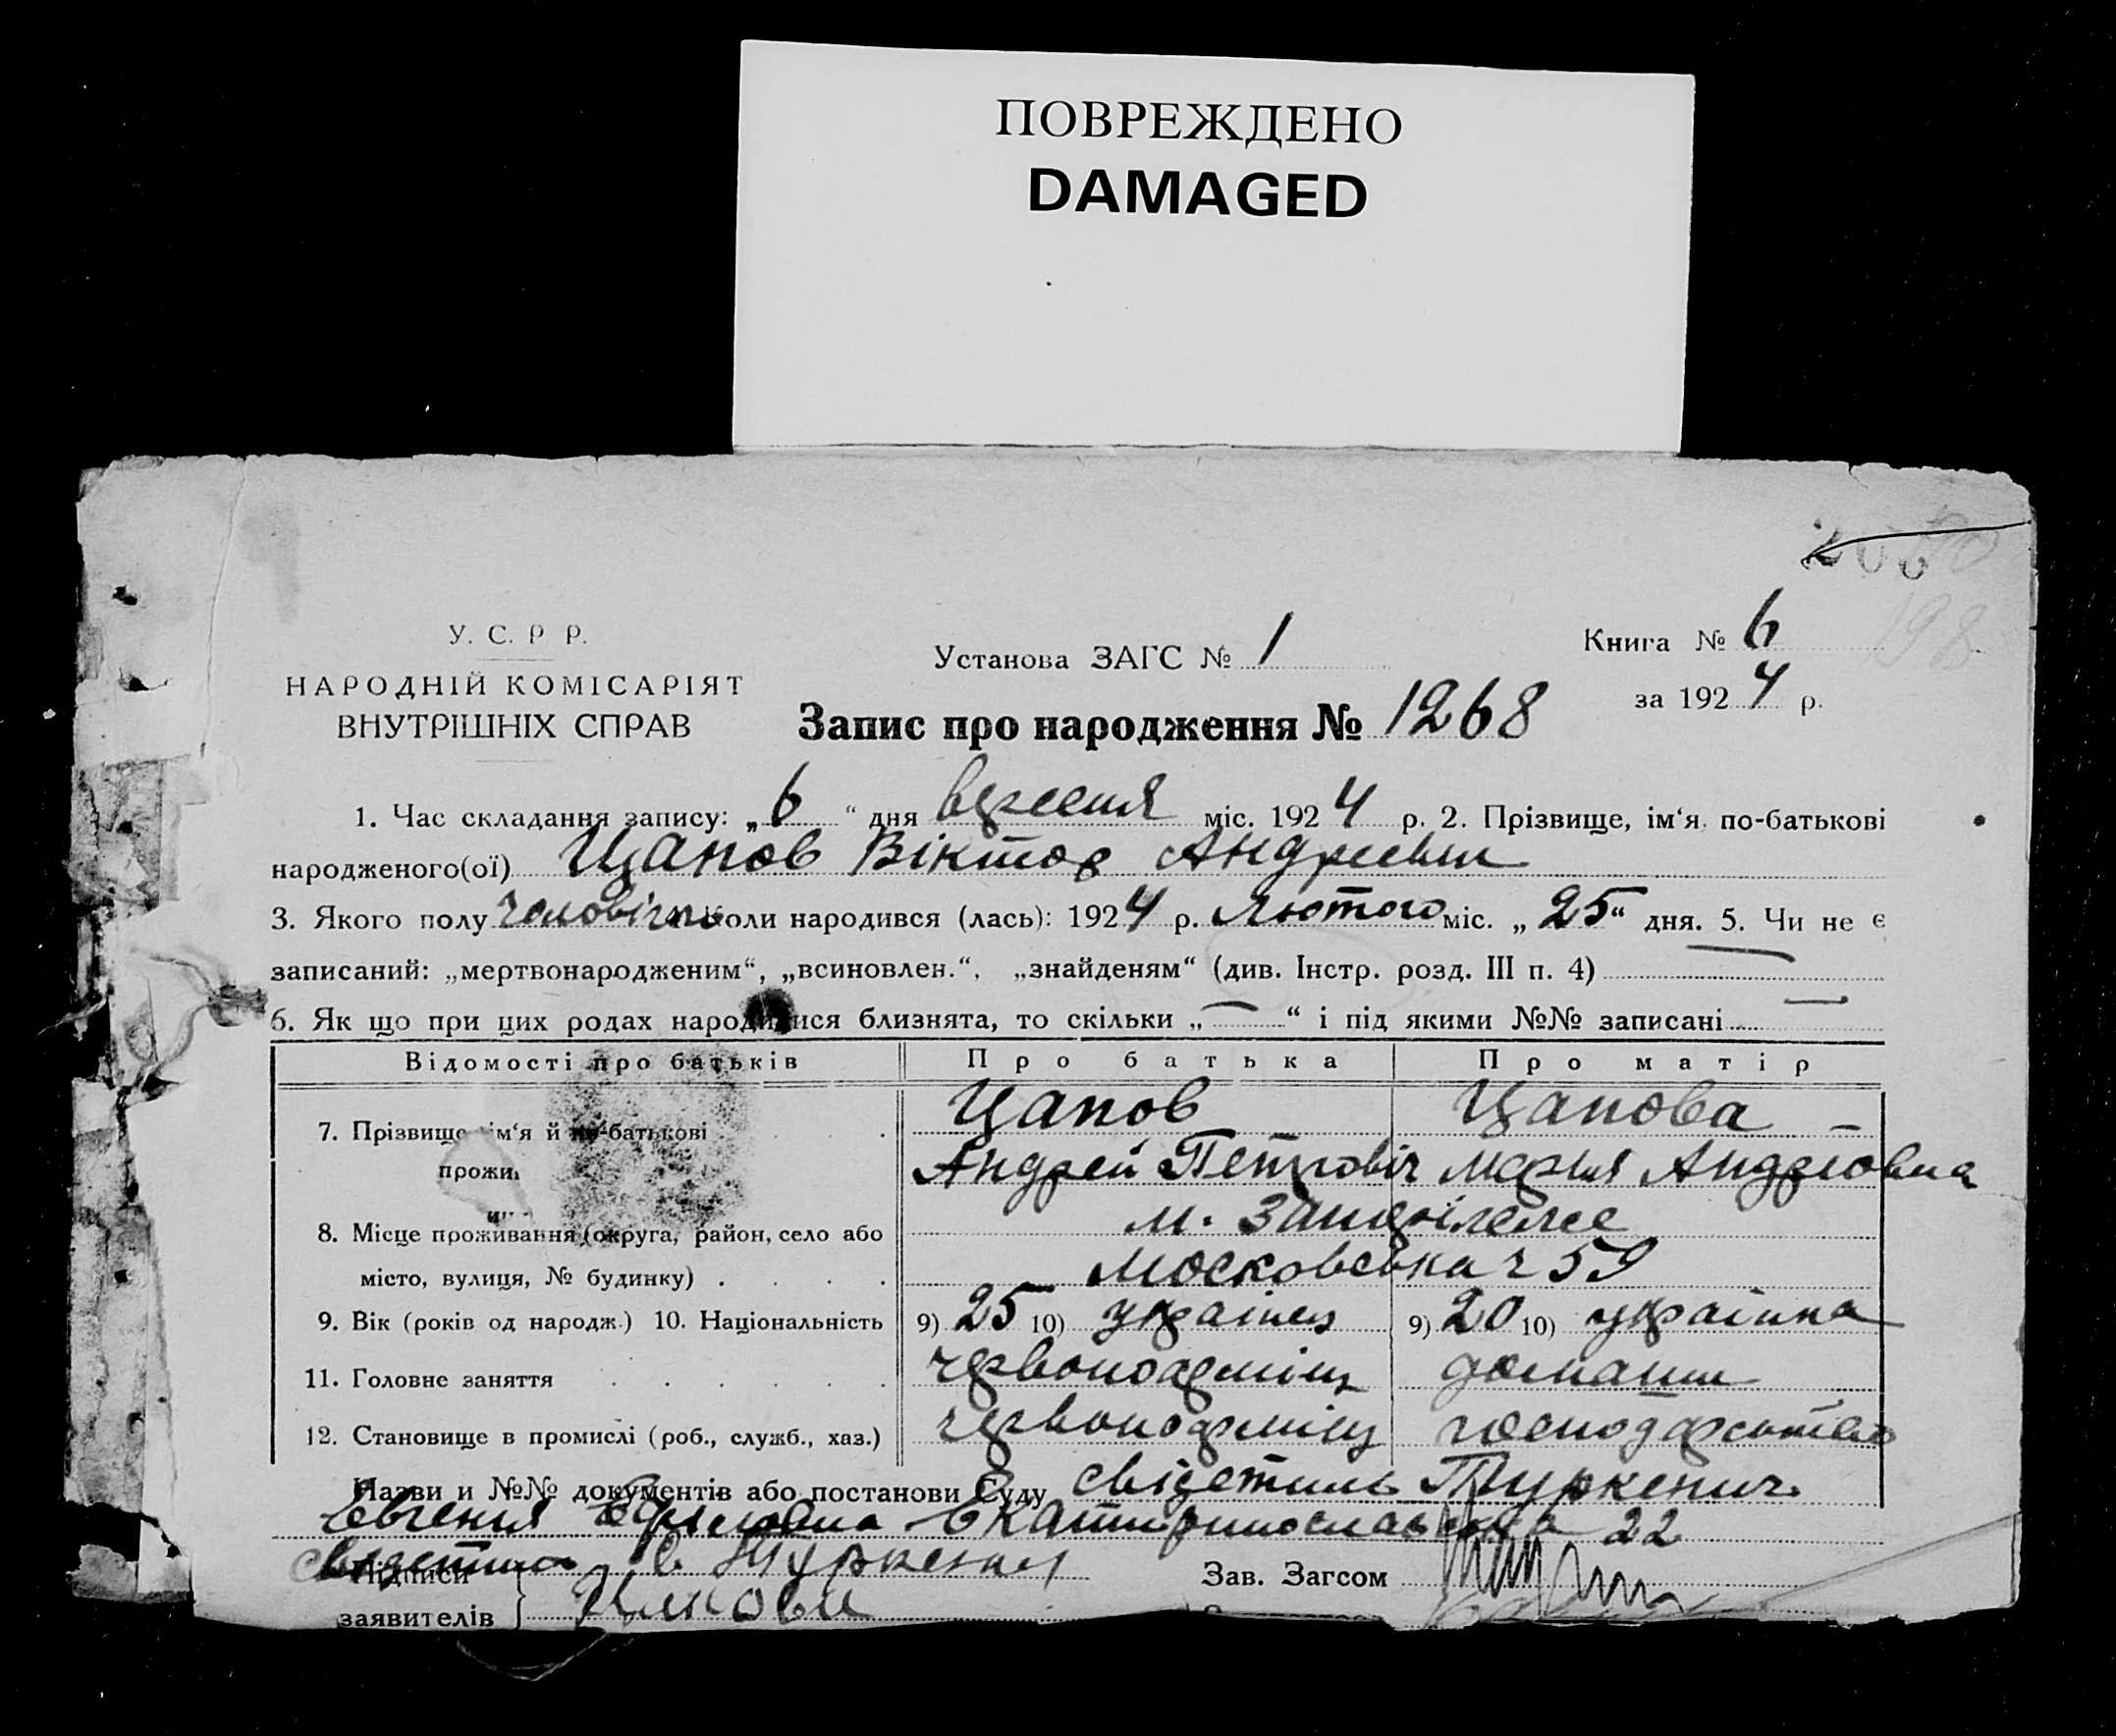 ПОВРЕЖДЕНО
DAMAGED
198
У. С. Р Р.
НАРОДНІЙ КОМІСАРІЯТ
ВНУТРІШНІХ СПРАВ
Установа ЗАГС № 1
Книга № 6
за 1924 р.
Запис про народження № 1268
1. Час складання запису: „6“ дня вересня міс. 1924 р. 2. Прізвище, ім‘я по-батькові
народженого(ої) Цапов Віктор Андреевич
3. Якого полу чоловічого Коли народився (лась): 1924 р. Лютого міс. „25“ дня. 5. Чи не є
записаний: „мертвонародженим“, „всиновлен.“, „знайденям“ (див. Інстр. розд. III п. 4)
6. Як що при цих родах народилися близнята, то скільки „—“ і під якими №№ записані —
Відомості про батьків Про батька Про матір
7. Прізвище ім‘я й по-батькові Цапов Цапова
прожи Андрей Петровіч Мария Андреовна
8. Місце проживання (округа, район, село або м.
місто, вулиця, № будинку) Московська ч 59
9. Вік (років од народж.) 10. Національність 9) 25 10) українец 9) 20 10) українка
11. Головне заняття червоноармиец домашн
12. Становище в промислі (роб., служб., хаз.) червоноармиец господарство
Назви и №№ документів або постанови Суду свідетиль Туркенич
Евгения Екатеринославська 22
Е. Туркенич
Підписи
заявителів
Зав. Загсом